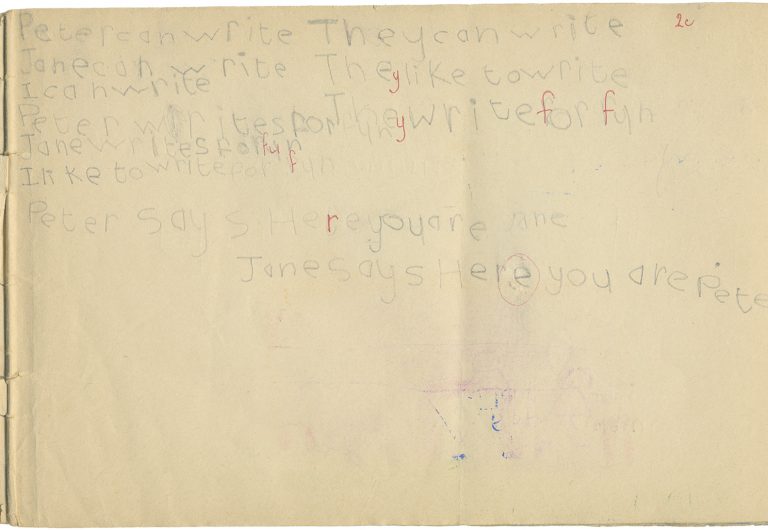 2c
Peter can write They can write
Jane can write They like to write
I can write
Peter writes for fun They write for fun
Jane writes for fun
I like to write for fun
Peter says Here you are
Jane says Here you are Pete